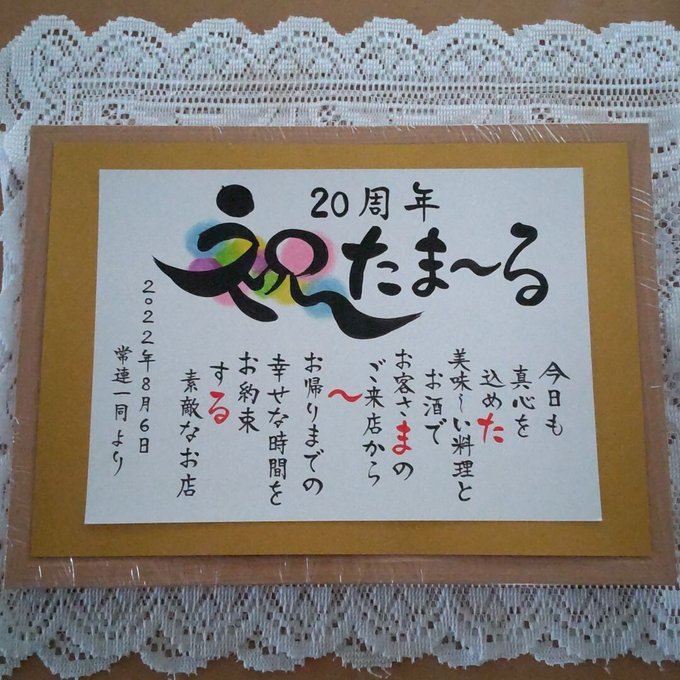 20周年
祝たま〜る
今日も
真心を
込めた
美味〜い料理と
お酒で
お客さまの
ご来店から
〜
お帰りまでの
幸せな時間を
お約束
する
素敵なお店
2022年8月6日
常連一同より